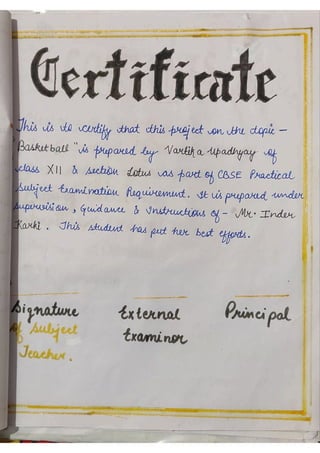 Certificate
This is to certify that this project on the topic –
Basketball" is prepared by Vartika Upadhyay of
class XII & section Lotus as part of CBSE Practical
Subject Examination Requirement. It is prepared under
supervision, Guidance & Instructions of - Mr. Inder
Karki. This student has put her best efforts.
Signature External Principal
of Subject Examinor
Teacher.